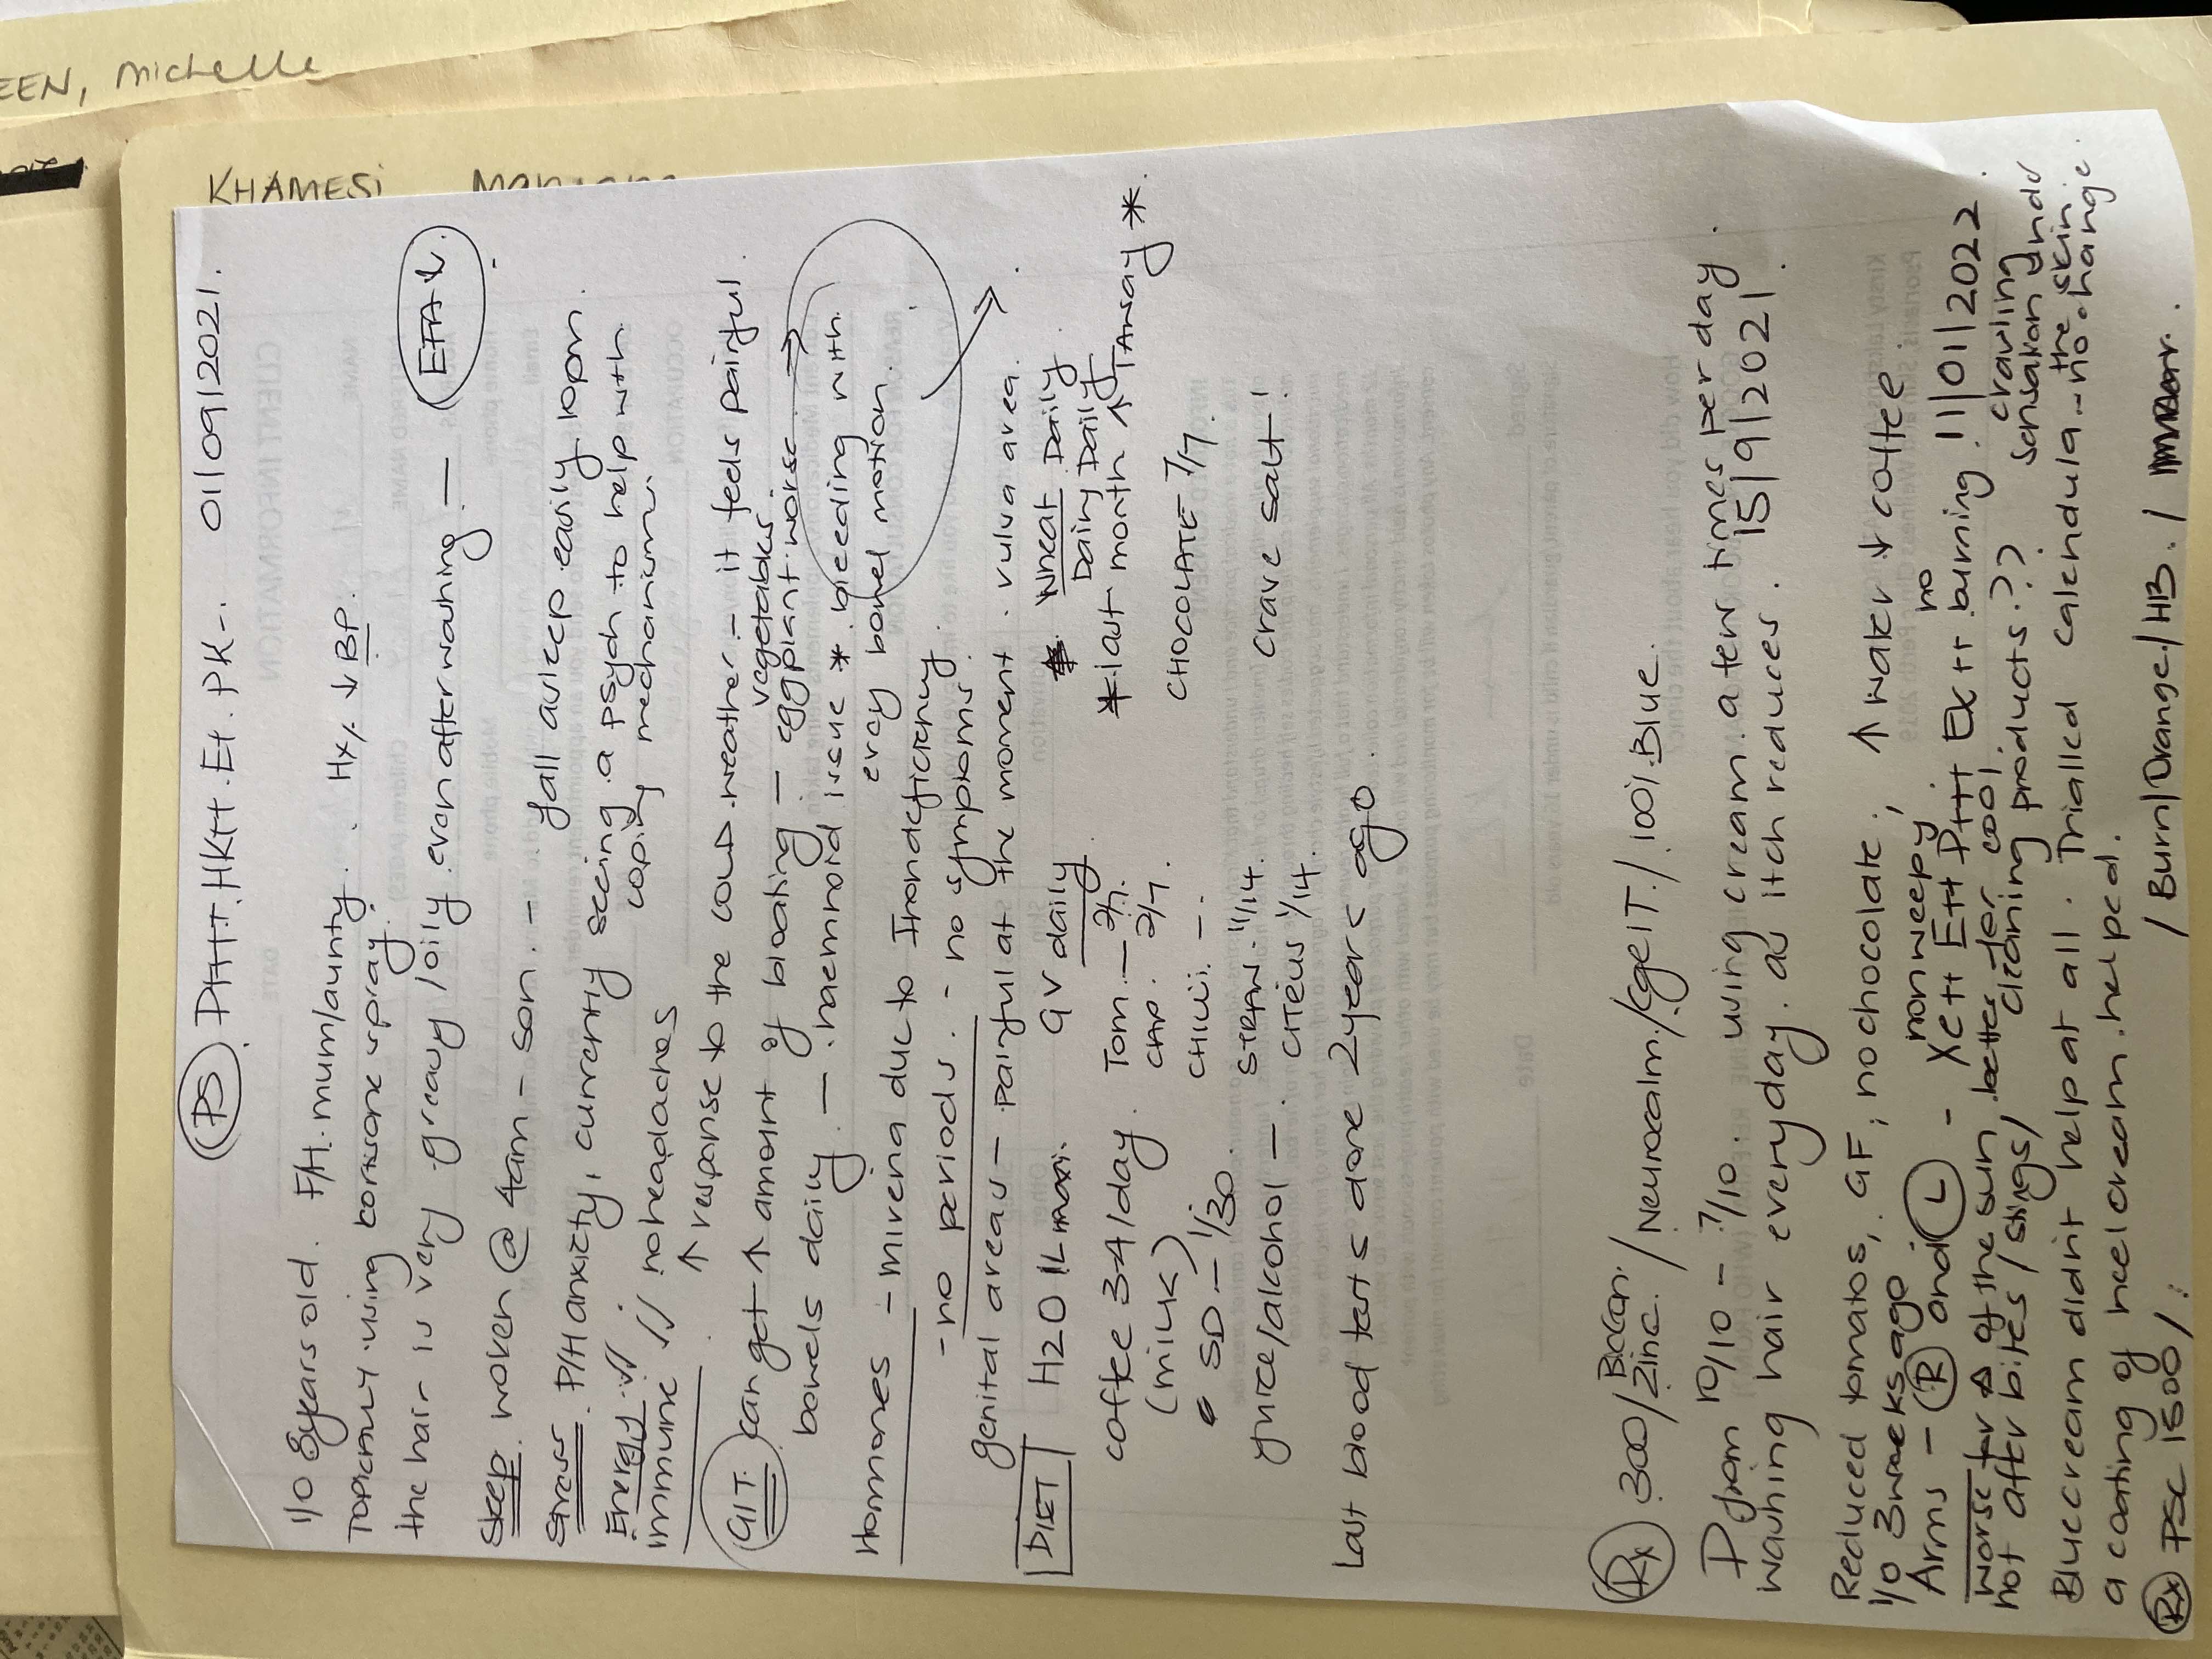 EEN, Michelle
KHAMESI
PS P+++. HK++. E+. PK-. 01/09/2021.
1/0 8years old. F/H. mum/aunty. Hx. ↓ BP.
TOPICALLY using cortisone spray.
the hair is very greasy/oily even after washing. — EFA ↓.
Sleep. woken @ 4am - son. - fall asleep easily 10pm.
Stress. P/H anxiety, currently seeing a psych to help with
coping mechanisms.
Energy ✓✓
immune ✓✓ no headaches
↑ response to the COLD weather. - it feels painful.
GIT. can get ↑ amount of bloating - vegetables
eggplant worse →
bowels daily. - haemorrhoid issue * bleeding with
every bowel motion.
Hormones - mirena due to Iron deficiency.
- no periods. - no symptoms.
genital areas - painful at the moment. vulva area.
DIET H2O 1L max. GV daily Wheat Daily
Dairy Daily
coffee 3-4/day. TOM. — 2/7. * last month ↑ TAWAY *.
(milk) CAP. 2/7.
SD - 1/30. CHILLI. -. CHOCOLATE 7/7.
STRAW. 1/14.
juice/alcohol - . CITRUS 1/14. Crave salt !
Last blood tests done 2years ago.
Rx 300/ Zinc. / Neurocalm. / 100% Blue.
P from 10/10 - 7/10. using cream. a few times per day.
washing hair everyday. as itch reduces. 15/9/2021.
Reduced tomatos, GF, no chocolate, ↑ water ↓ coffee
1/0 3weeks ago non weepy. no
Arms - R and L - Xe++ E++ P+++ Ex++ burning. 11/01/2022.
worse for the sun, better for cool. crawling
not after bites/stings/ cleaning products.?? sensation under
the skin.
Blue cream didnt help at all. Trialled calendula - no change
a coating of heel cream. helped.
Rx PSC 1500/: /Burn/Orange/HB.